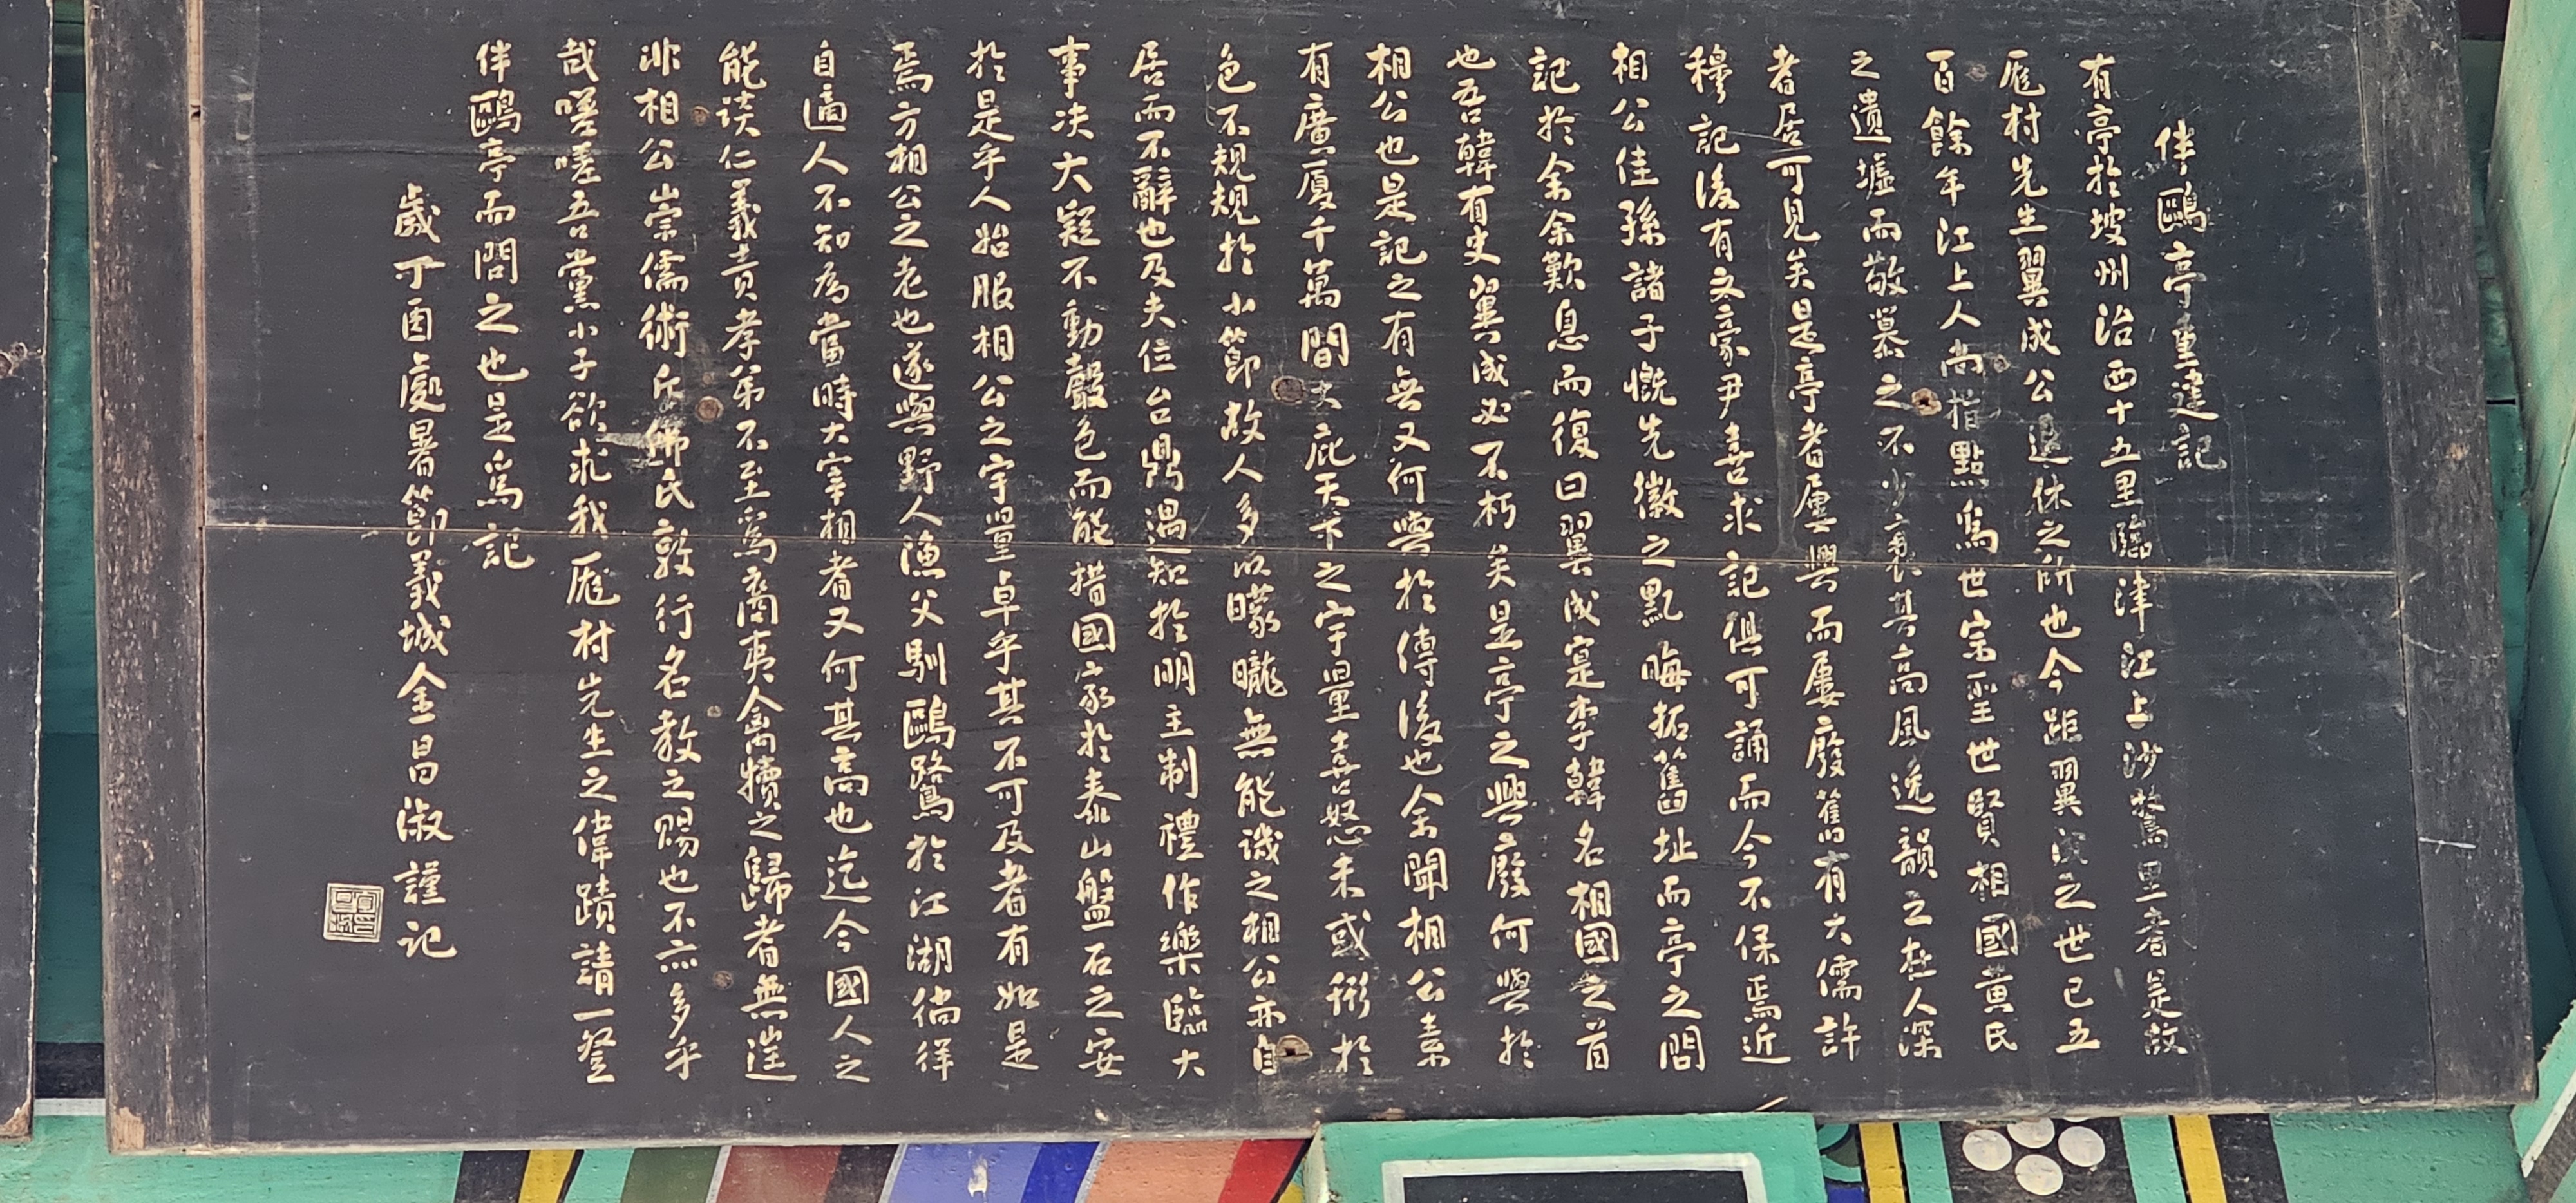 伴鷗亭重建記
有亭於坡州治西十五里臨津江上沙鶩里者是故
厖村先生翼成公退休之所也今距翼成之世已五
百餘年江上人尚指點爲世宗聖世賢相國黃氏
之遺墟而敬慕之不少衰其高風逸韻之在人深
者居可見矣是亭者屢興而屢廢舊有大儒許
穆記後有文豪尹喜求記俱可誦而今不保焉近
相公佳孫諸子慨先徽之點晦拓舊址而亭之問
記於余余歎息而復曰翼成寔李韓名相國之首
也吾韓有史翼成必不朽矣是亭之興廢何與於
相公也是記之有無又何與於傳後也余聞相公素
有廣廈千萬間大庇天下之宇量喜怒未或形於
色不規規於小節故人多以矇矓無能譏之相公亦自
居而不辭也及夫位台鼎遇知於明主制禮作樂臨大
事决大疑不動聲色而能措國家於泰山盤石之安
於是乎人始服相公之宇量卓乎其不可及者有如是
焉方相公之老也遂與野人漁父馴鷗鷺於江湖徜徉
自適人不知為當時大宰相者又何其高也迄今國人之
能談仁義貴孝弟不至爲裔夷禽犢之歸者無遑
非相公崇儒術斥佛氏敦行名教之賜也不亦多乎
哉嗟嗟吾黨小子欲求我厖村先生之偉蹟請一登
伴鷗亭而問之也是爲記
歲丁酉處暑節義城金昌淑謹記